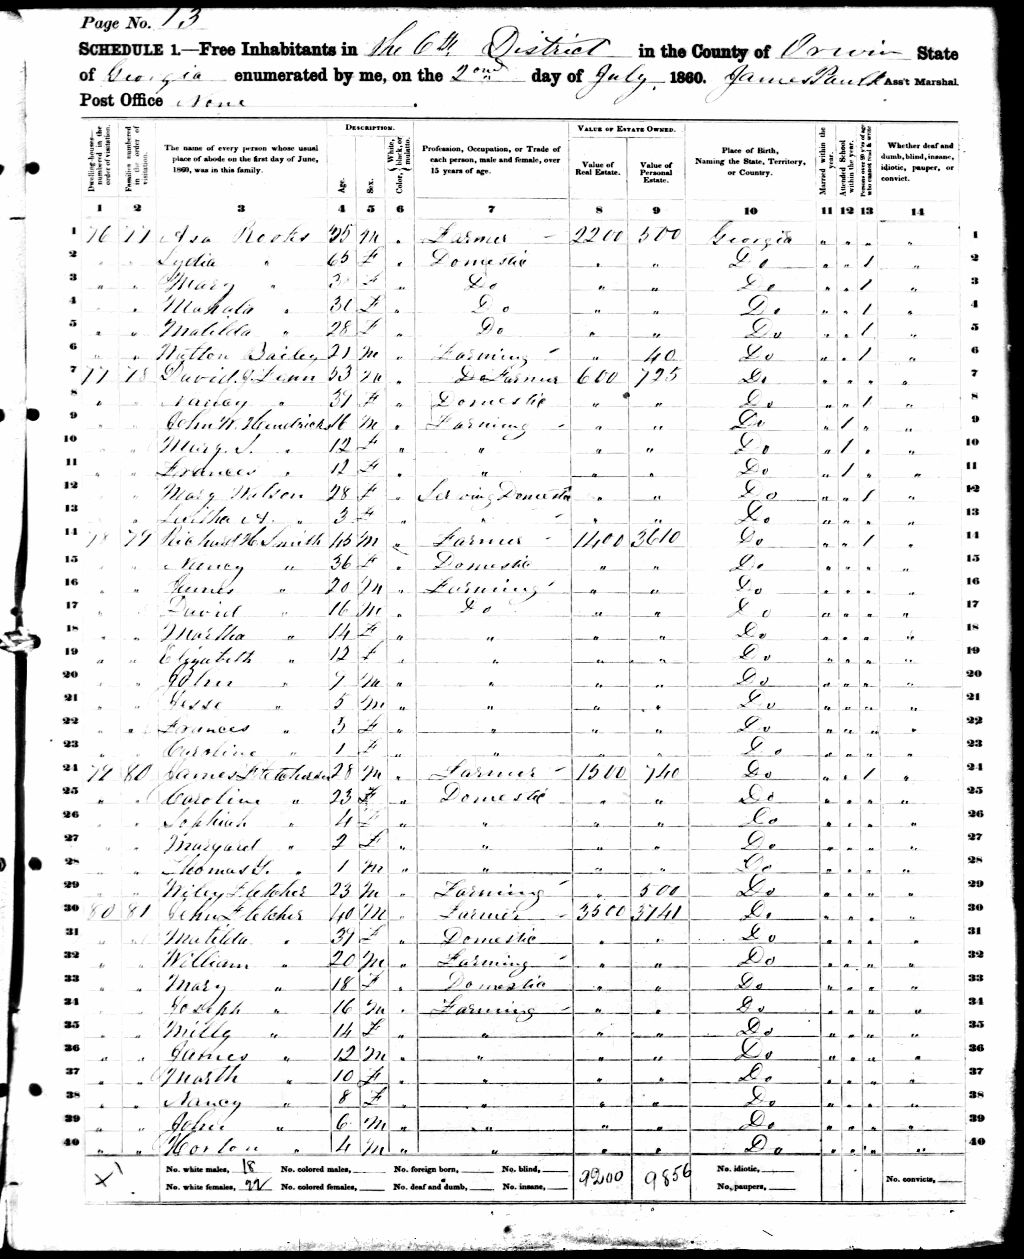 Page No. 13
SCHEDULE 1.—Free Inhabitants in the 6th District in the County of Irwin State
of Georgia enumerated by me, on the 2ond day of July, 1860. James Paulk Ass't Marshal.
Post Office None
DESCRIPTION. VALUE OF ESTATE OWNED.
Dwelling-houses—numbered in the order of visitation. Families numbered in the order of visitation. The name of every person whose usual place of abode on the first day of June, 1860, was in this family. Age. Sex. Color, White, black, or mulatto. Profession, Occupation, or Trade of each person, male and female, over 15 years of age. Value of Real Estate. Value of Personal Estate. Place of Birth, Naming the State, Territory, or Country. Married within the year. Attended School within the year. Persons over 20 y'rs of age who cannot read & write Whether deaf and dumb, blind, insane, idiotic, pauper, or convict.
1 2 3 4 5 6 7 8 9 10 11 12 13 14
1 76 77 Asa Rooks 75 M " Farmer 2200 500 Georgia " " " " 1
2 " " Lydia " 65 F " Domestic " " Do " " 1 " 2
3 " " Mary " F " Do " " Do " " 1 " 3
4 " " Mahala " 31 F " Do " " Do " " 1 " 4
5 " " Matilda " 28 F " Do " " Do " " 1 " 5
6 " " Bailey 21 M " Farming " 40 Do " " 1 " 6
7 77 78 David J. Fenn 53 M " Do Farmer 600 725 Do " " " " 7
8 " " Nancy " 37 F " Domestic " " Do " " 1 " 8
9 " " John W. Hendricks 16 M " Farming " " Do " 1 " " 9
10 " " Mary J. " 12 F " " " " Do " 1 " " 10
11 " " Frances " 12 F " " " " Do " 1 " " 11
12 " " Mary Wilson 28 F " Serving Domestic " " Do " " 1 " 12
13 " " A. " 3 F " " " " Do " " " " 13
14 78 79 Richard H. Smith 45 M " Farmer 1400 3610 Do " " 1 " 14
15 " " Nancy " 36 F " Domestic " " Do " " " " 15
16 " " James " 20 M " Farming " " Do " " " " 16
17 " " David " 16 M " Do " " Do " " " " 17
18 " " Martha " 14 F " " " " Do " " " " 18
19 " " Elizabeth " 12 F " " " " Do " " " " 19
20 " " John " 7 M " " " " Do " " " " 20
21 " " Jesse " 5 M " " " " Do " " " " 21
22 " " Frances " 3 F " " " " Do " " " " 22
23 " " Caroline " 1 F " " " " Do " " " " 23
24 79 80 James 28 M " Farmer 1500 740 Do " " 1 " 24
25 " " Caroline " 23 F " Domestic " " Do " " " " 25
26 " " Sophiah " 4 F " " " " Do " " " " 26
27 " " Margaret " 2 F " " " " Do " " " " 27
28 " " Thomas G. " 1 M " " " " Do " " " " 28
29 " " Wiley Fletcher 23 M " Farming " 500 Do " " " " 29
30 80 81 John Fletcher 40 M " Farmer 3500 3741 Do " " " " 30
31 " " Matilda " 37 F " Domestic " " Do " " " " 31
32 " " William " 20 M " Farming " " Do " " " " 32
33 " " Mary " 18 F " Domestic " " Do " " " " 33
34 " " Joseph " 16 M " Farming " " Do " " " " 34
35 " " Milly " 14 F " " " " Do " " " " 35
36 " " James " 12 M " " " " Do " " " " 36
37 " " Marth " 10 F " " " " Do " " " " 37
38 " " Nancy " 8 F " " " " Do " " " " 38
39 " " John " 6 M " " " " Do " " " " 39
40 " " Horton " 4 M " " " " Do " " " " 40
No. white males, 18 No. colored males, No. foreign born, No. blind, 9200 9856 No. idiotic,
No. white females, 22 No. colored females, No. deaf and dumb, No. insane, No. paupers, No. convicts,